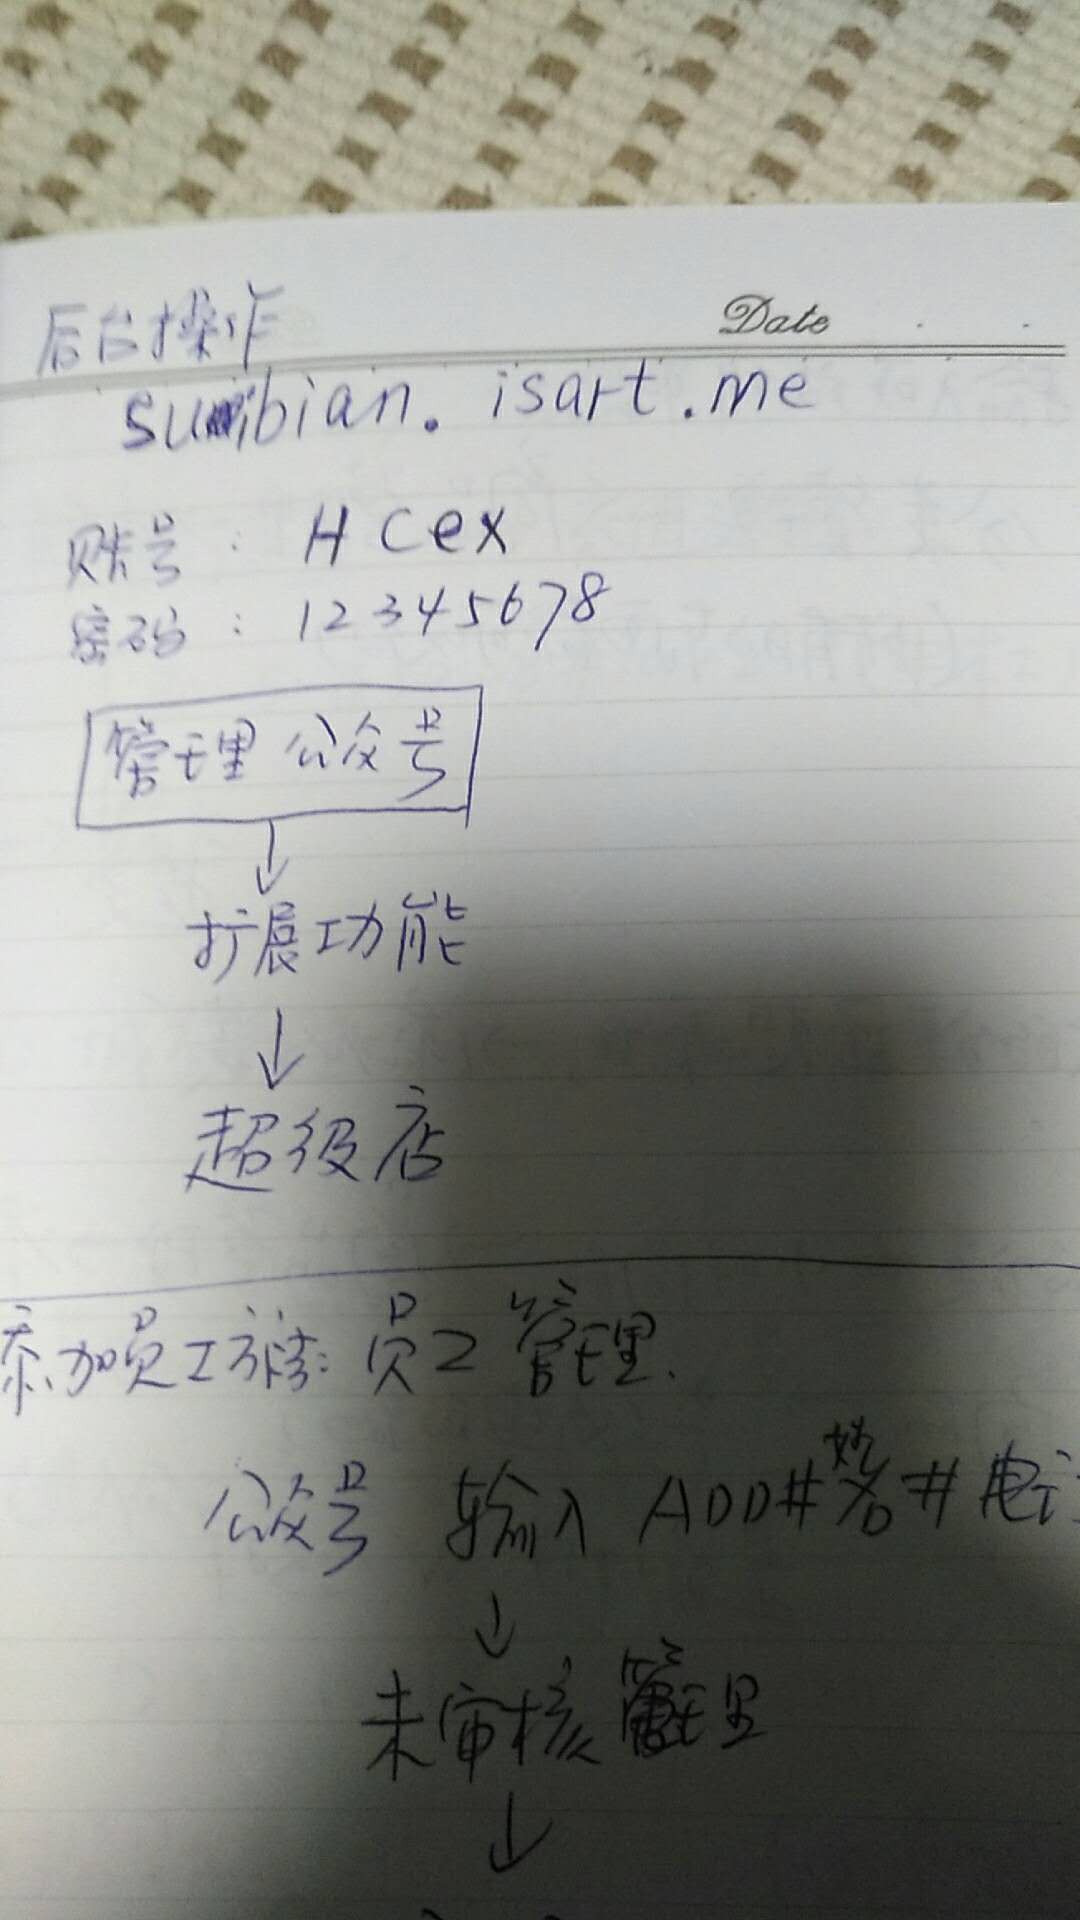 Date
后台操作
suibian. isart.me
账号: HCex
密码: 12345678
管理公众号
↓
扩展功能
↓
超级店
添加员工方法: 员工管理.
公众号 输入 ADD#姓名#电话
↓
未审核管理
↓